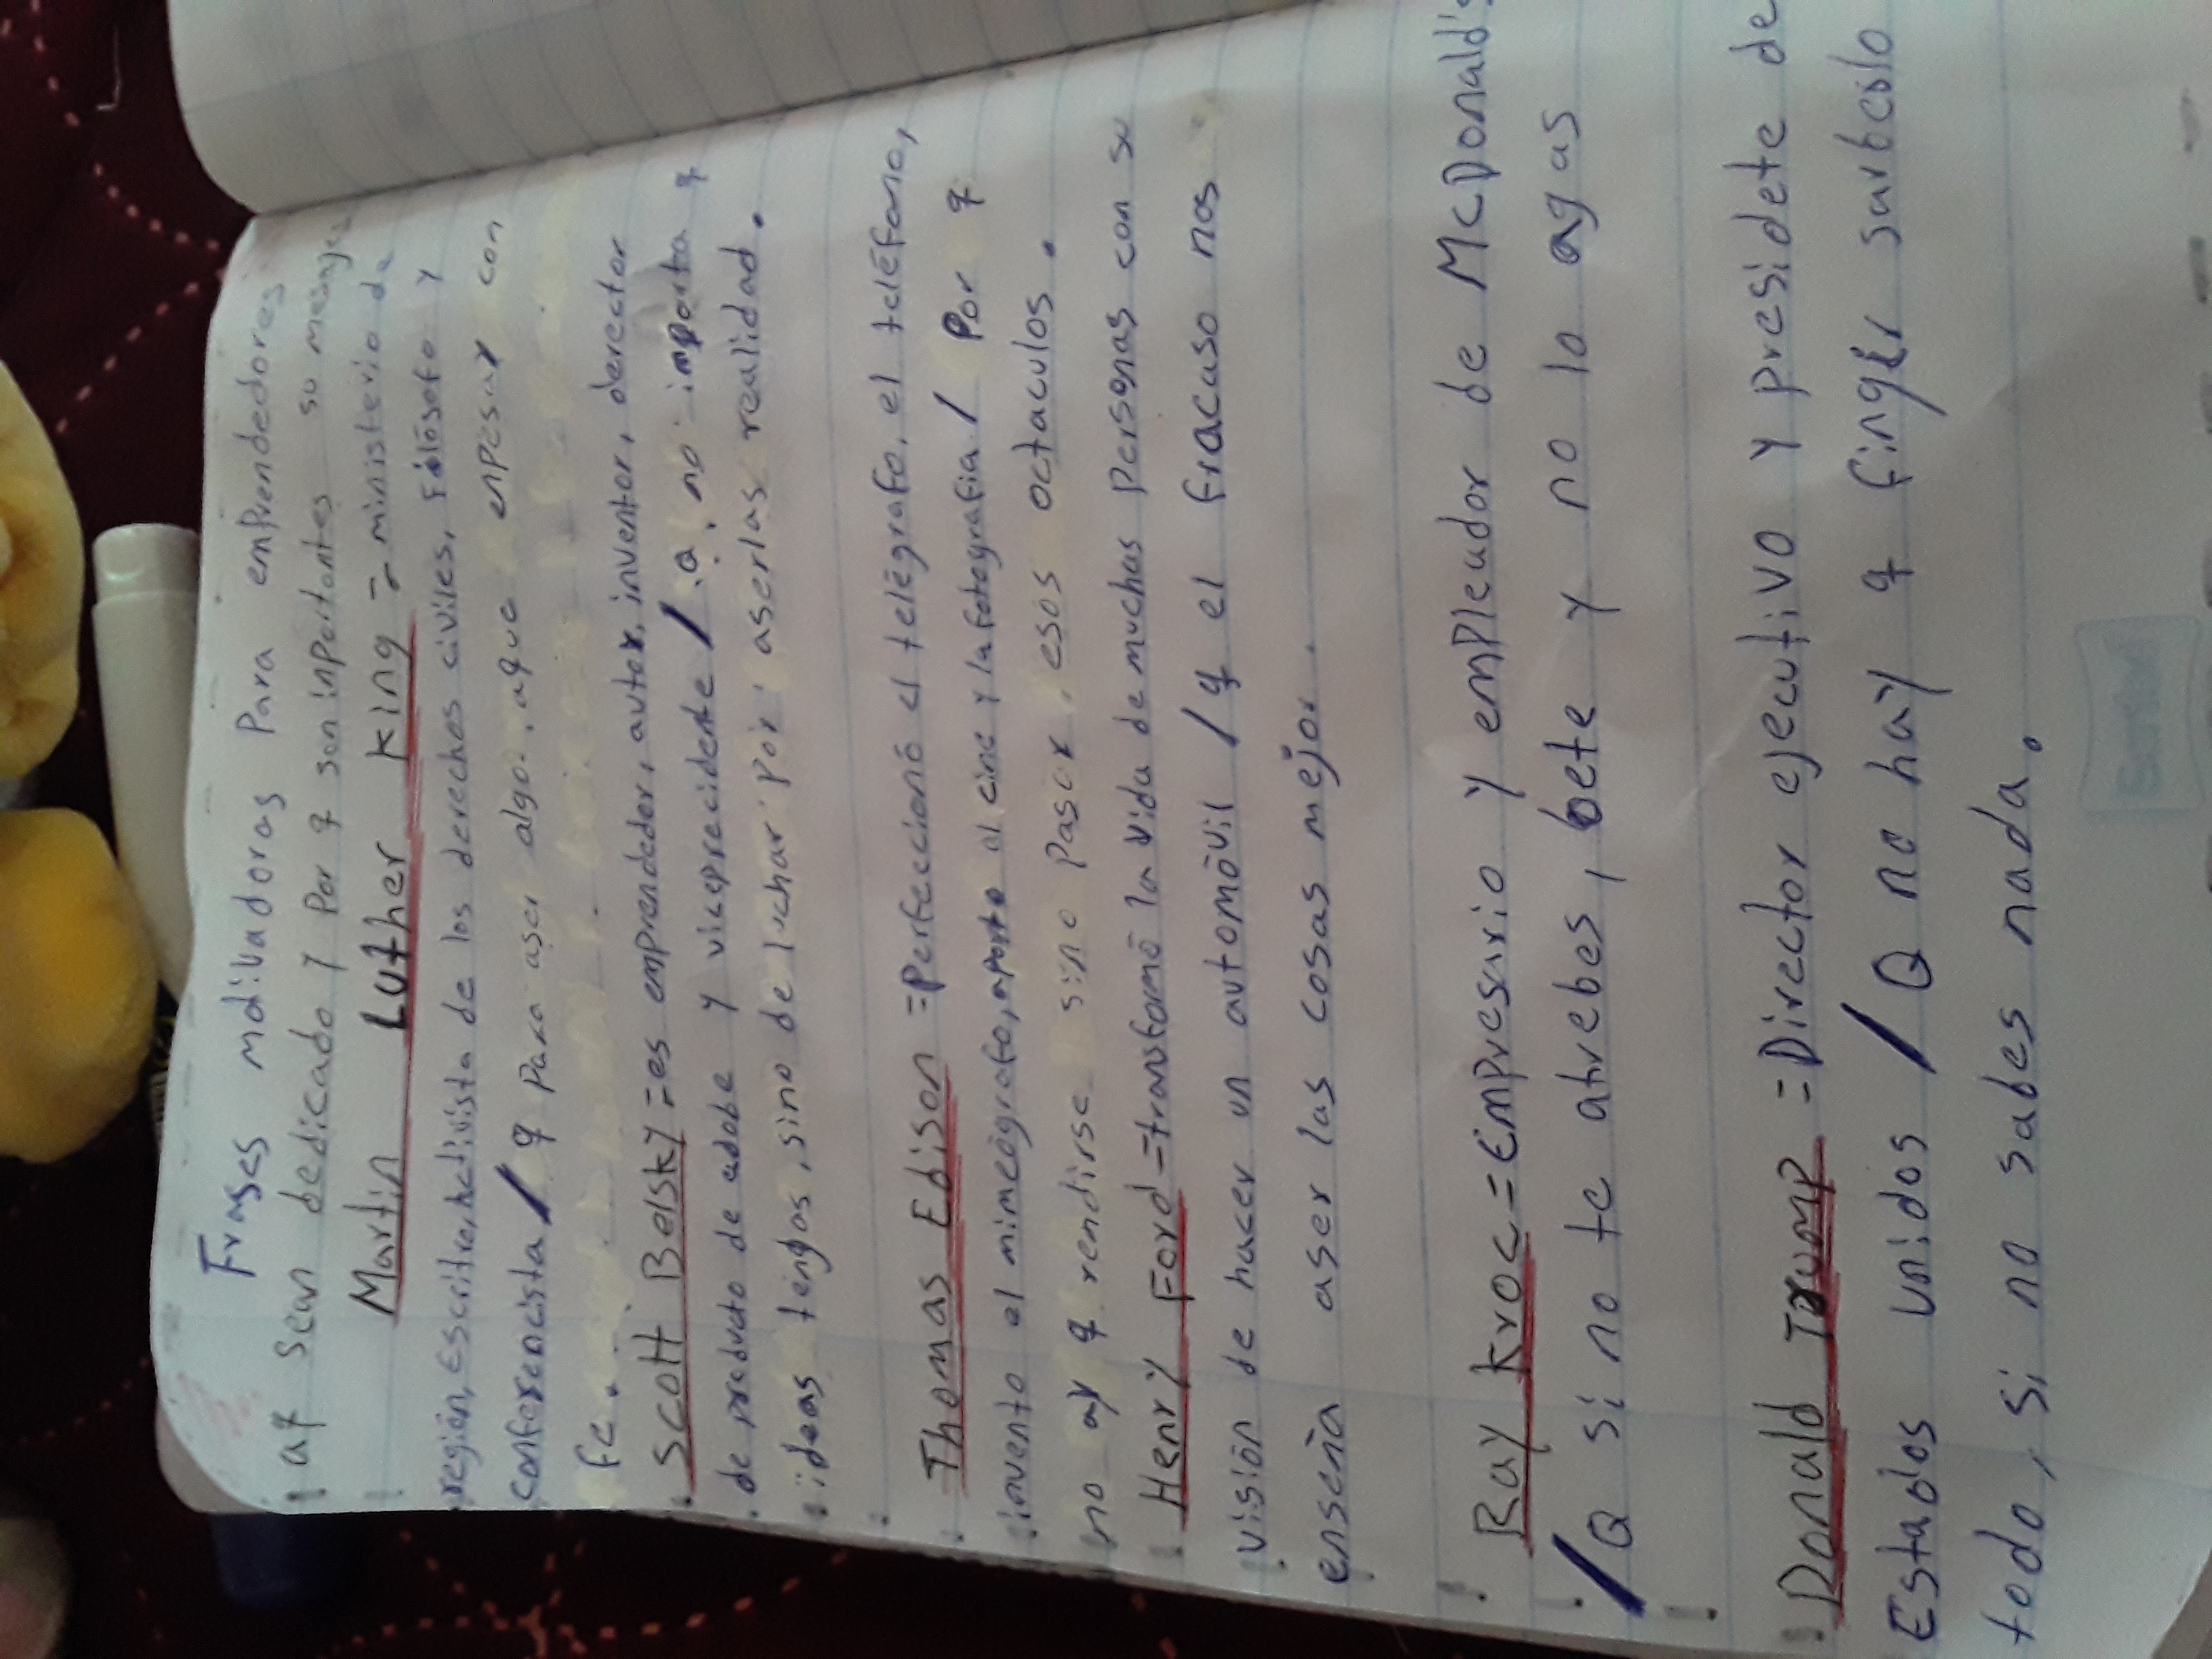 Frases motivadoras Para emprendedores
a q sean dedicado y Por q son inportantes su mensaje
Martin Luther King = ministerio de
región, Escritor, hactivista de los derechos civiles, Filósofo y
conferencista / q para aser algo, a que enpesar con
fe.
Scott Belsky = es emprendedor, autor, inventor, derector
de producto de adobe y viceprecidente / a no importa q
ideas tengas, sino de luchar por aserlas realidad.
Thomas Edison = Perfeccionó el telégrafo, el teléfono,
invento el mimeógrafo, aporto al cine y la fotografia / Por q
no ay q rendirse sino pasar esos octaculos.
Henry Ford = transformó la vida de muchas personas con su
visión de hacer un automóvil / q el fracaso nos
enseña aser las cosas mejor.
Ray Kroc = Empresario y empleador de McDonald's
/ Q si no te atrebes, bete y no lo agas
Donald Trump = Director ejecutivo y presidete de
Estados unidos / Q no hay q fingir saberlo
todo, si no sabes nada.